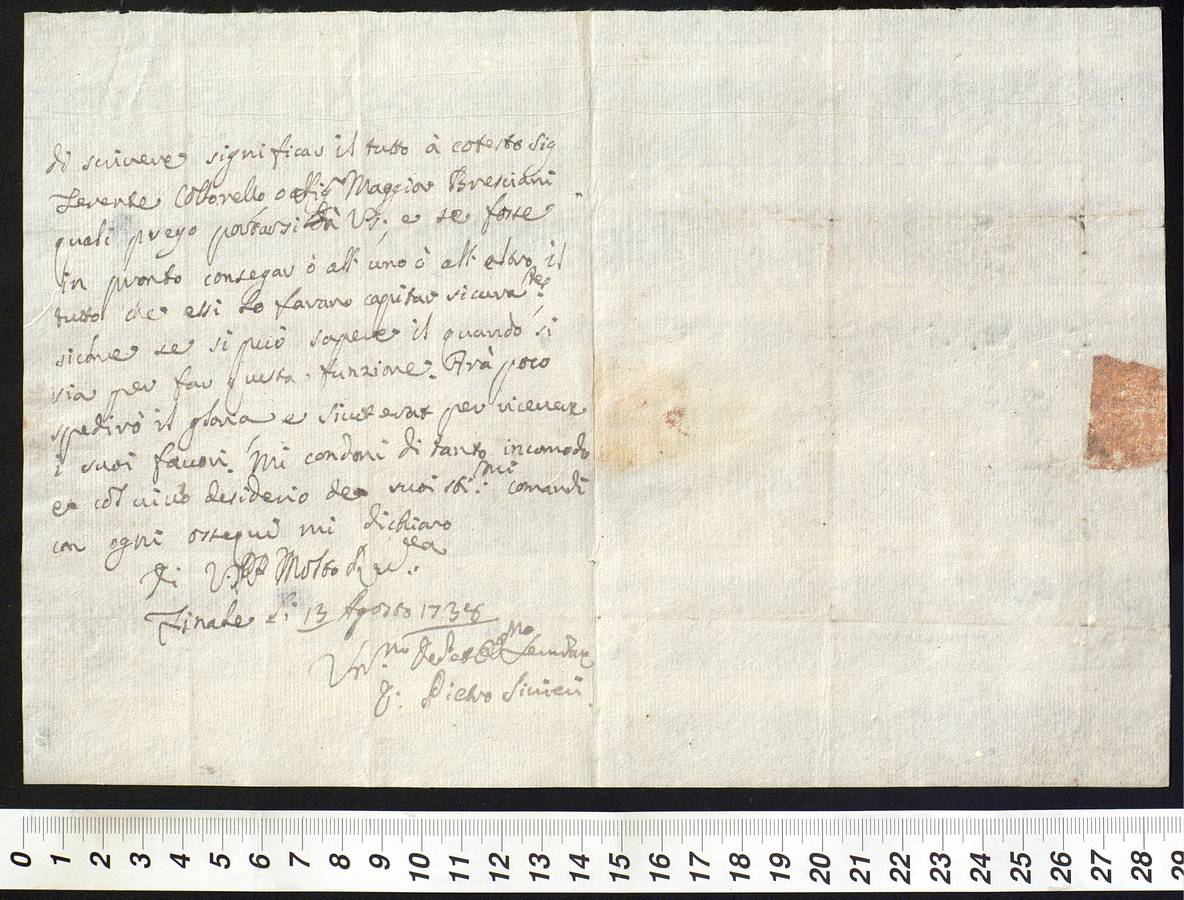 di scrivere significar il tutto à cotesto Sig
Tenente Cottorello o Sig.r Maggior Bresciani
quali prego portarsi da VS: e se fosse
in pronto consegar ò all'uno ò all'altro, il
tutto che essi lo farano capitar sicura.te
sicome se si può sapere il quando si
sia per far questa funzione. Frà poco
spedirò il per riceuer
i suoi fauori. Mi condoni di tanto incomodo
e col uiuo desiderio de suoi sti:mi comandi
con ogni ossequi mi dichiaro
Di V:S Molto Reu.da
Finale li 13 Agosto 1738
mo Seruitore
Pietro
0 1 2 3 4 5 6 7 8 9 10 11 12 13 14 15 16 17 18 19 20 21 22 23 24 25 26 27 28 29